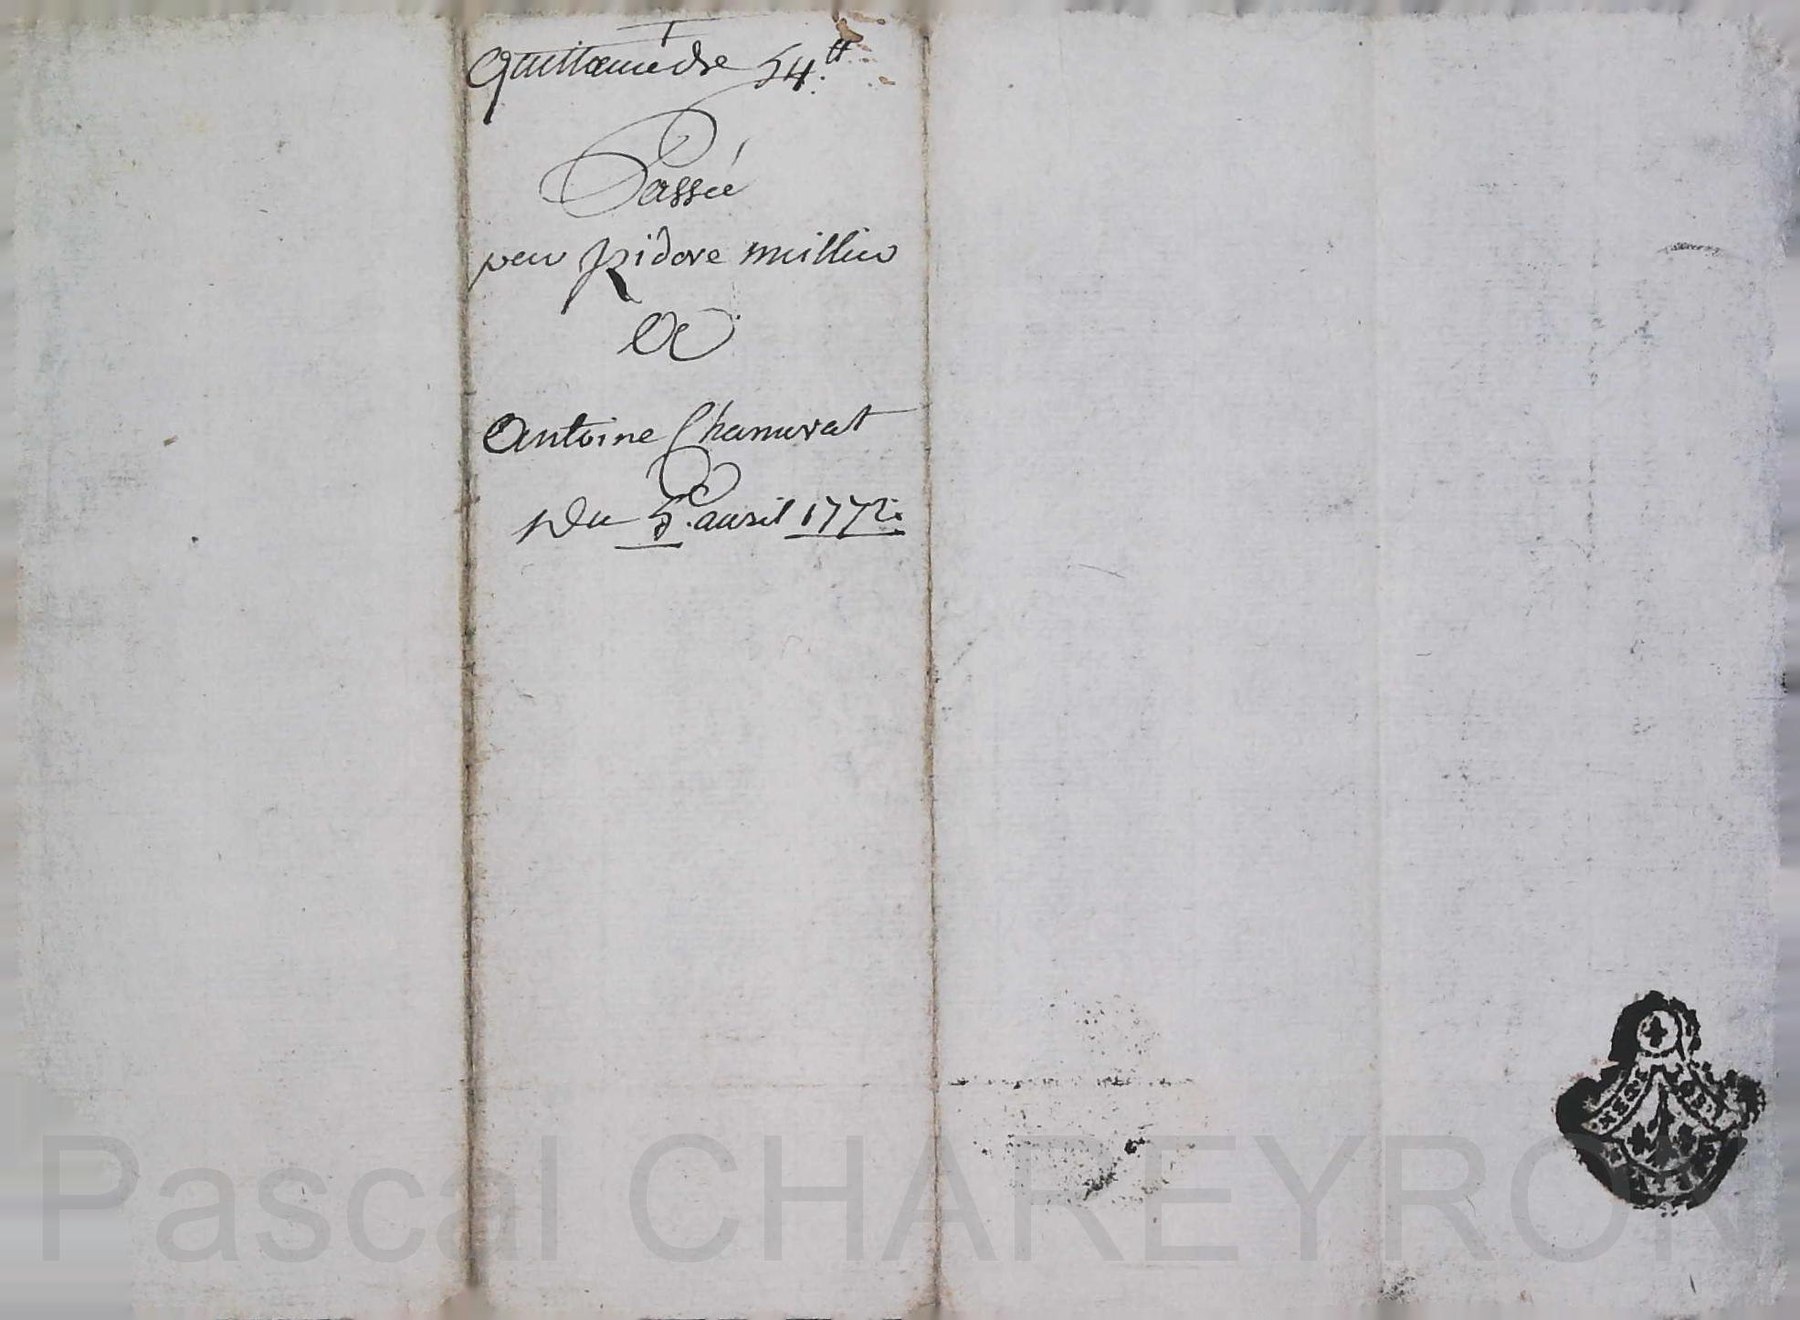 Quittance de 54 ᵗᵗ
Passée
par Isidore millier
A
Antoine Chanuvat
Du 5.e auril 1772.
Pascal CHAREYRON